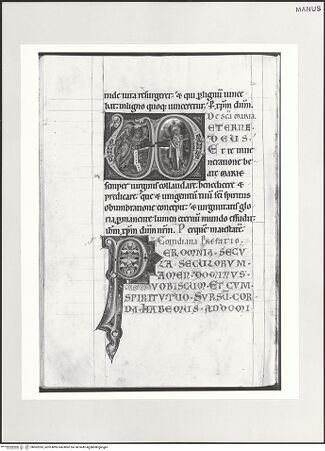 MANUS
unde uita resurgeret: & qui p lignum uince
bat: in ligno quoq; uinceretur. P. xpm dnm.
De sca maria.
ETERNE
DEUS.
Et te in ue
neratione be
ate marie
semper uirginis collaudare. benedicere &
predicare. que & unigenitum tuum sci spiritus
obumbratione concepit: & uirginitatis glo
ria pmanente lumen eternum mundo effudit:
ihm xpm dnm nrm. Per quem maiestatem.
Cotidiana Prefatio.
PER OMNIA SECU
LA SECULORUM.
AMEN. DOMINUS
VOBISCUM. ET CUM
SPIRITU TUO. SURSUM COR
DA. HABEMUS AD DOMI